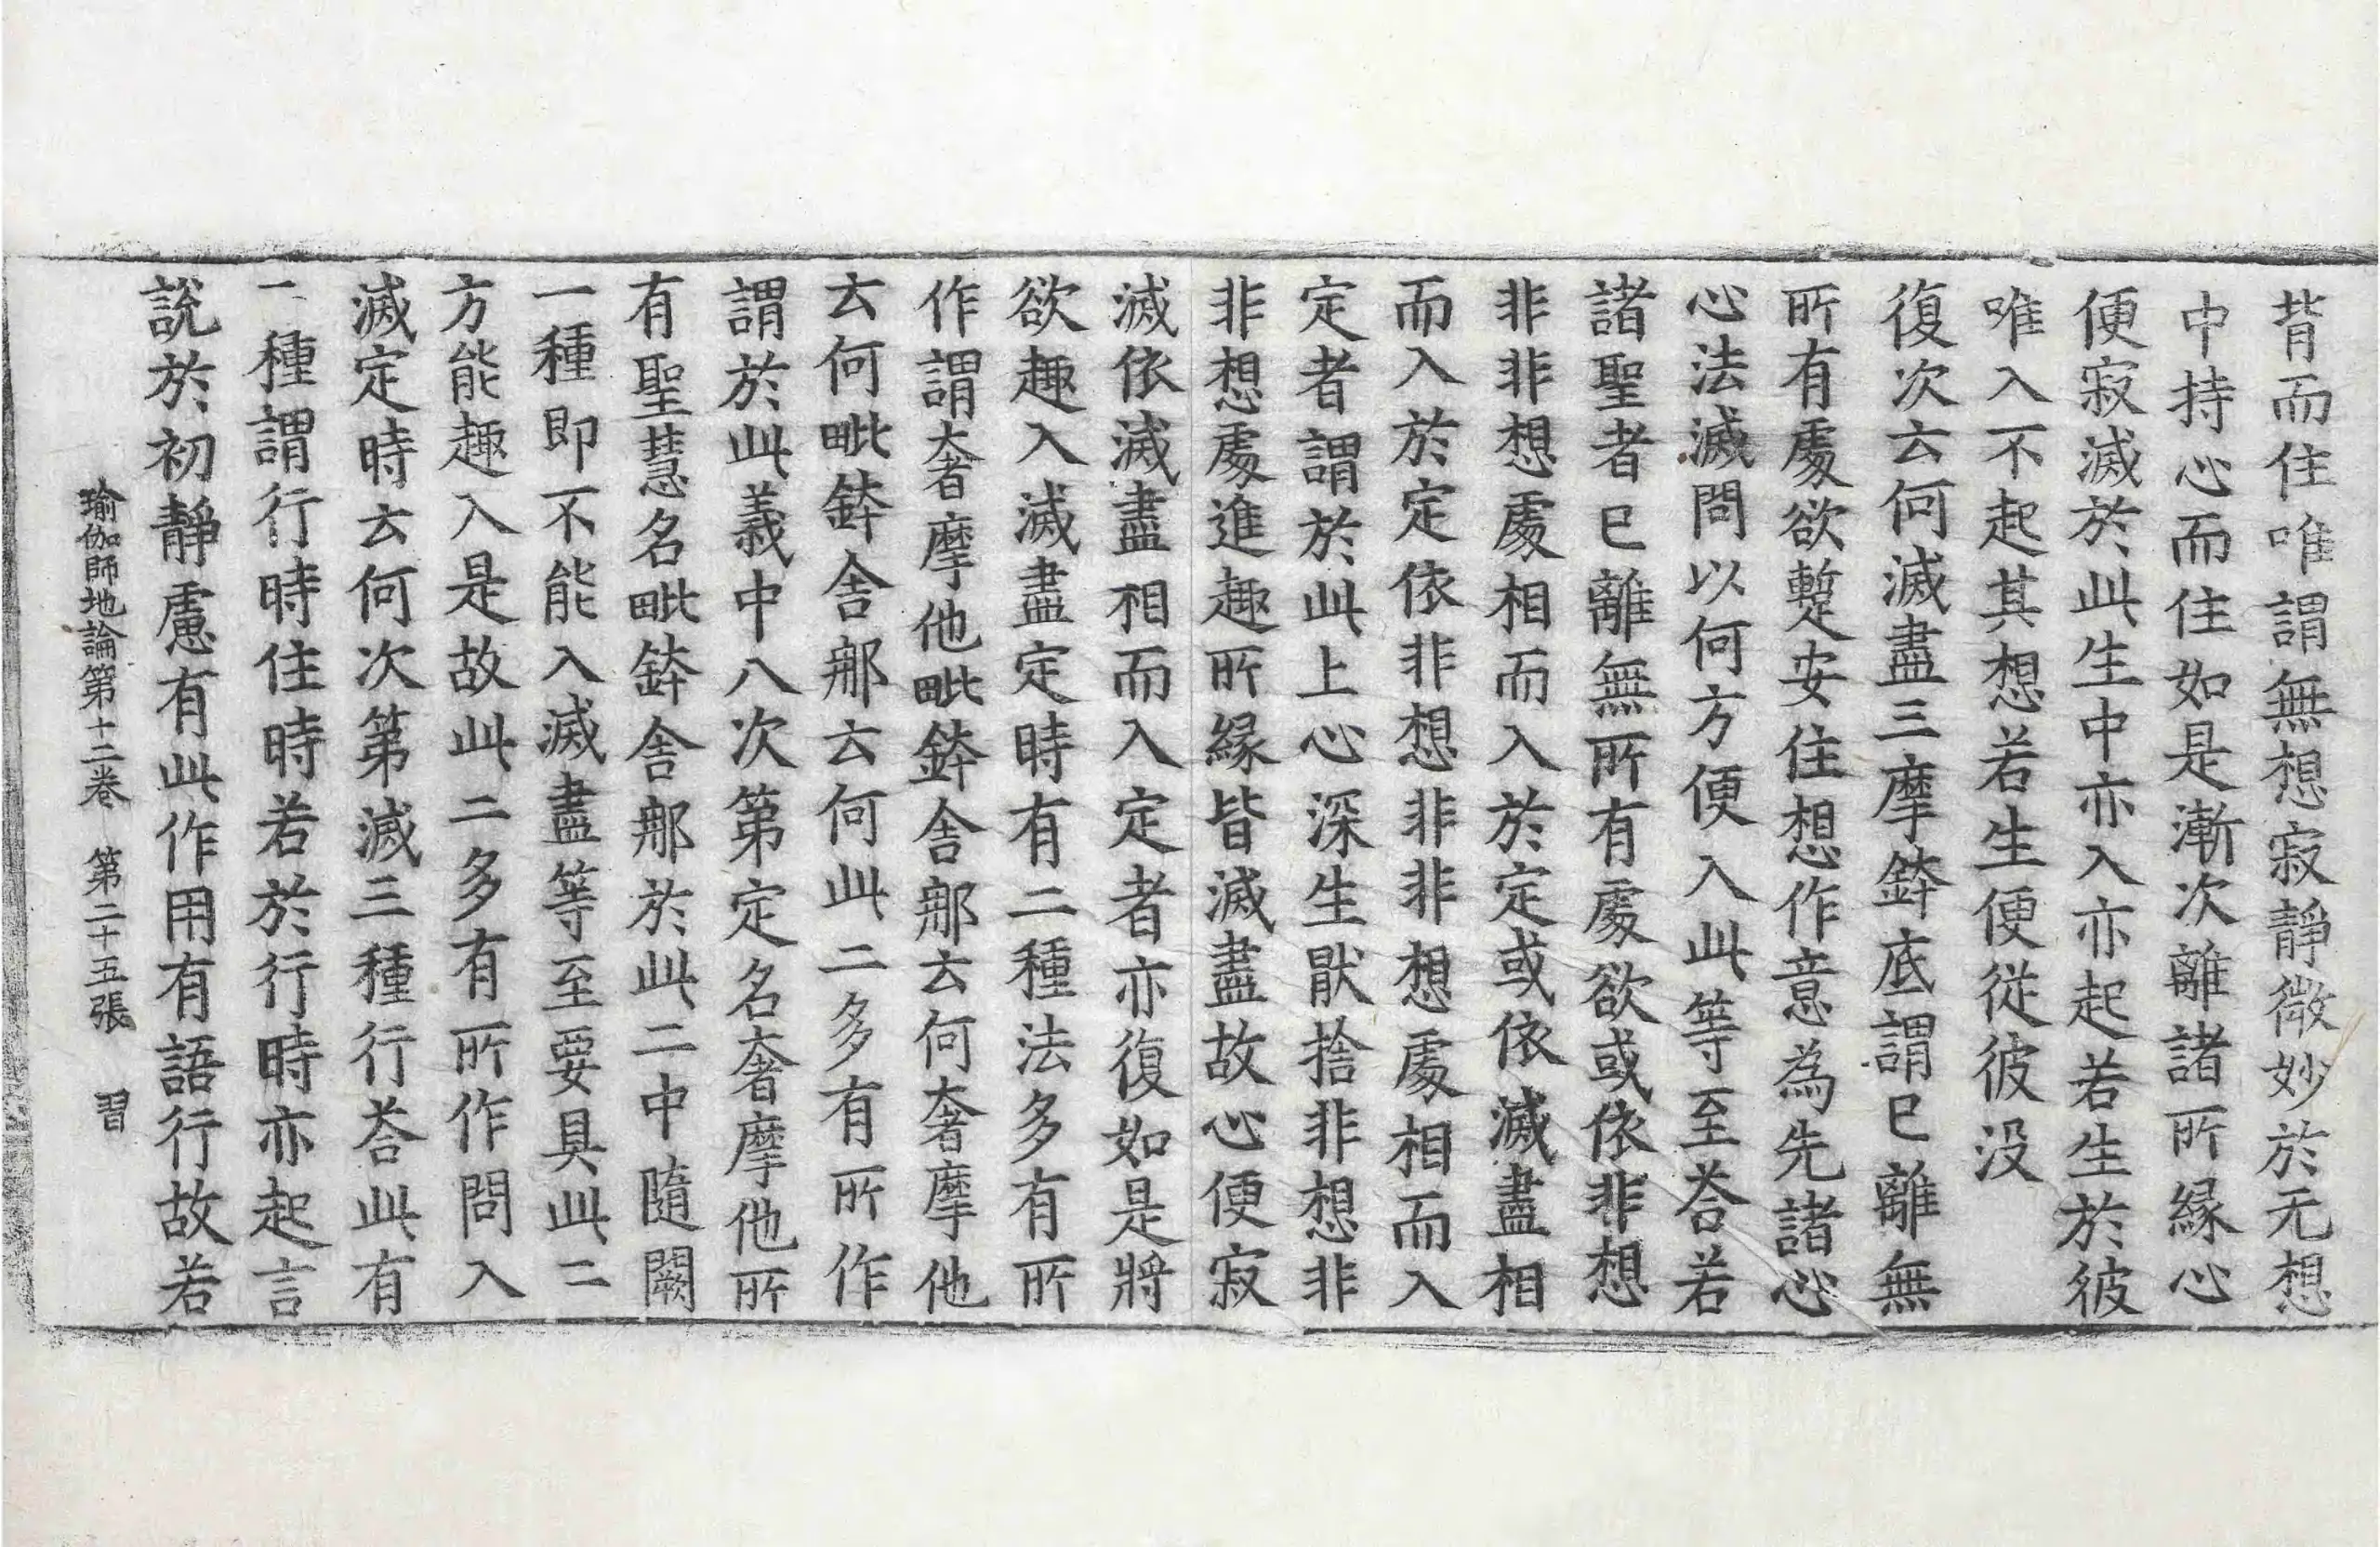 背而住唯謂無想寂靜微妙於无想
中持心而住如是漸次離諸所緣心
便寂滅於此生中亦入亦起若生於彼
唯入不起其想若生便從彼没
復次云何滅盡三摩鉢底謂已離無
所有處欲蹔安住想作意為先諸心
心法滅問以何方便入此等至荅若
諸聖者已離無所有處欲或依非想
非非想處相而入於定或依滅盡相
而入於定依非想非非想處相而入
定者謂於此上心深生猒捨非想非
非想處進趣所緣皆滅盡故心便寂
滅依滅盡相而入定者亦復如是將
欲趣入滅盡定時有二種法多有所
作謂奢摩他毗鉢舍那云何奢摩他
云何毗鉢舍那云何此二多有所作
謂於此義中八次第定名奢摩他所
有聖慧名毗鉢舍那於此二中隨闕
一種即不能入滅盡等至要具此二
方能趣入是故此二多有所作問入
滅定時云何次第滅三種行荅此有
二種謂行時住時若於行時亦起言
說於初靜慮有此作用有語行故若
瑜伽師地論第十二卷 第二十五張 習